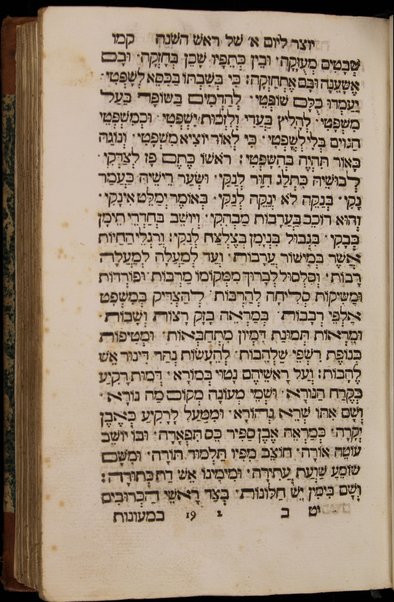 יוצר ליום א׳ של ראש השנה קמו
שבטים מעוקה׃ ובין כתפיו שכן בחזקה׃ ובכם
אשענה ובם אתחזקה׃ כי בשבתו בכסא לשפטי׳
יעמדו כלם שופטי׳ להדמים בשופר בעל
משפטי׳ להליץ בעדי ולזכות ישפטי׳ וכמשפטי
הגוים בלי לשפטי׳ כי לאור יוציא משפטי׳ ונוגה
כאור תהיה בהשפטי׃ ראשו כתם פז לצדקי׳
לבושיה כתלג חור לנקי׳ ושער רישיה כעמר
נקי׳ בנקה לא ינקה לנקי׳ באומר ימלט אי נקי׳
והוא רוכב בערבות מבהקי׳ ויושב בחדרי תימן
בבקי׳ בגבול בנימן בצלצח לנקי׃ ורגלי החיות
אשר במישור ערבות׳ ועד למעלה למעלה
רבות׳ וסלסול לברוך ממקומו מרבות ופורדות
ומשיקות סליחה להרבות׳ להצדיק במשפט
אלפי רבבות׃ במראה בזק רצוא ושבות׃
ומראות תמונת דמיון מתחבאות׃ ומטיפות
כנופת רשפי שלהבות׃ להעשות נהר דינור אש
להבות׃ ועל ראשיהם נטוי במורא׳ דמות רקיע
כקרח הנורא׳ ושמי מעונה מקום מה נורא׳
ושם אתו שרא נהורא׳ וממעל לרקיע כאבן
יקרה׳ כמראה אבן ספיר כס תפארה׳ ובו יושב
עוטה אורה׳ חוצב מפיו תלמוד תורה׳ ומשם
שומע שועת עתירה׳ ומימינו אש דת כתורה׃
ושם בימין יש חלונות׳ בצד ראשי הכרובים
יט ב 2 19 במעונות